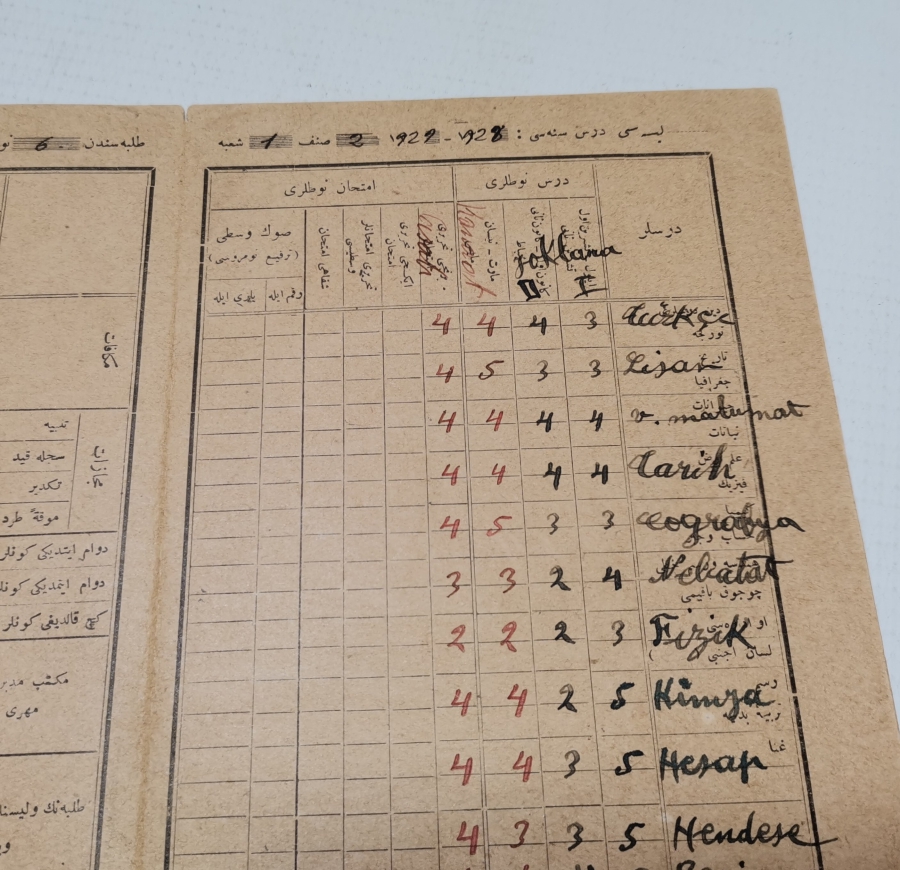 طلبه‌سندن 6
لیسه سی درس سنه سی : ١٩٢٨ - ١٩٢٩ صنف 2 شعبه 1
درسلر
درس نوطلری
امتحان نوطلری
مارت - نیسان
ایكنجی تحریری امتحان
تحریری امتحانلر وسطیسی
شفاهی امتحان
صوك وسطی
(ترفیع نومروسی)
رقم ایله
یازی ایله
Türkçe 3 4 4 4
Lisan 3 3 5 4
v. malumat 4 4 4 4
Tarih 4 4 4 4
Coğrafya 3 3 5 4
Nebatat 4 2 3 3
Fizik 3 2 2 2
Kimya 5 2 4 4
Hesap 5 3 4 4
Hendese 5 3 3 4
تاریخ
جغرافیا
نباتات
فیزیك
چوجوق باقیمی
لسان اجنبی
غنا
مكافات
مجازات
تنبیه
سجله قید
تكدیر
موقةً طرد
دوام ایتدیكی كونلر
دوام ایتمدیكی كونلر
كچ قالدیغی كونلر
مكتب مدیر
مهری
طلبه‌نك ولیسنك